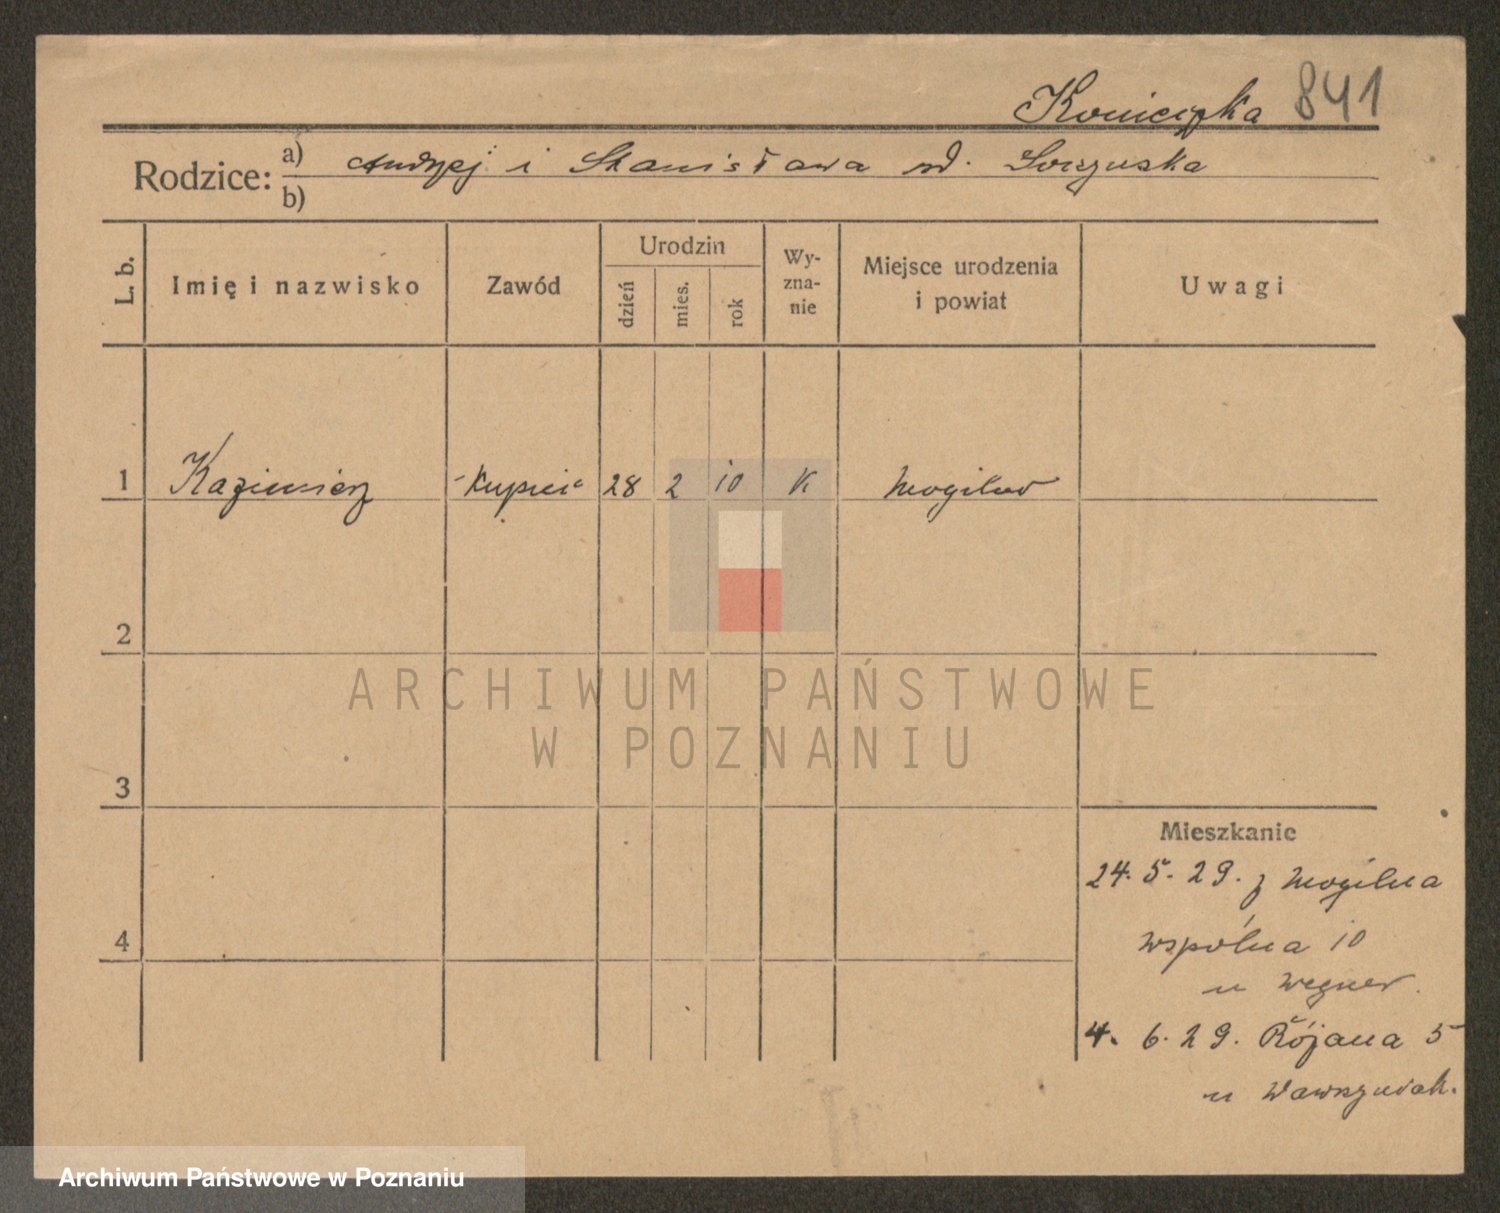 Koniczka 841
Rodzice: a) Andrzej i Stanisława
b)
L. b.
Imię i nazwisko
Zawód
Urodzin
dzień
mies.
rok
Wy-
zna-
nie
Miejsce urodzenia
i powiat
Uwagi
1 Kazimierz kupiec 28 2 10 K Mogilno
2
ARCHIWUM PAŃSTWOWE
W POZNANIU
3
Mieszkanie
24. 5. 29. z Mogilna
4
Wspólna 10
u Wegner.
4. 6. 29. Różana 5
u Wawrzyniak.
Archiwum Państwowe w Poznaniu